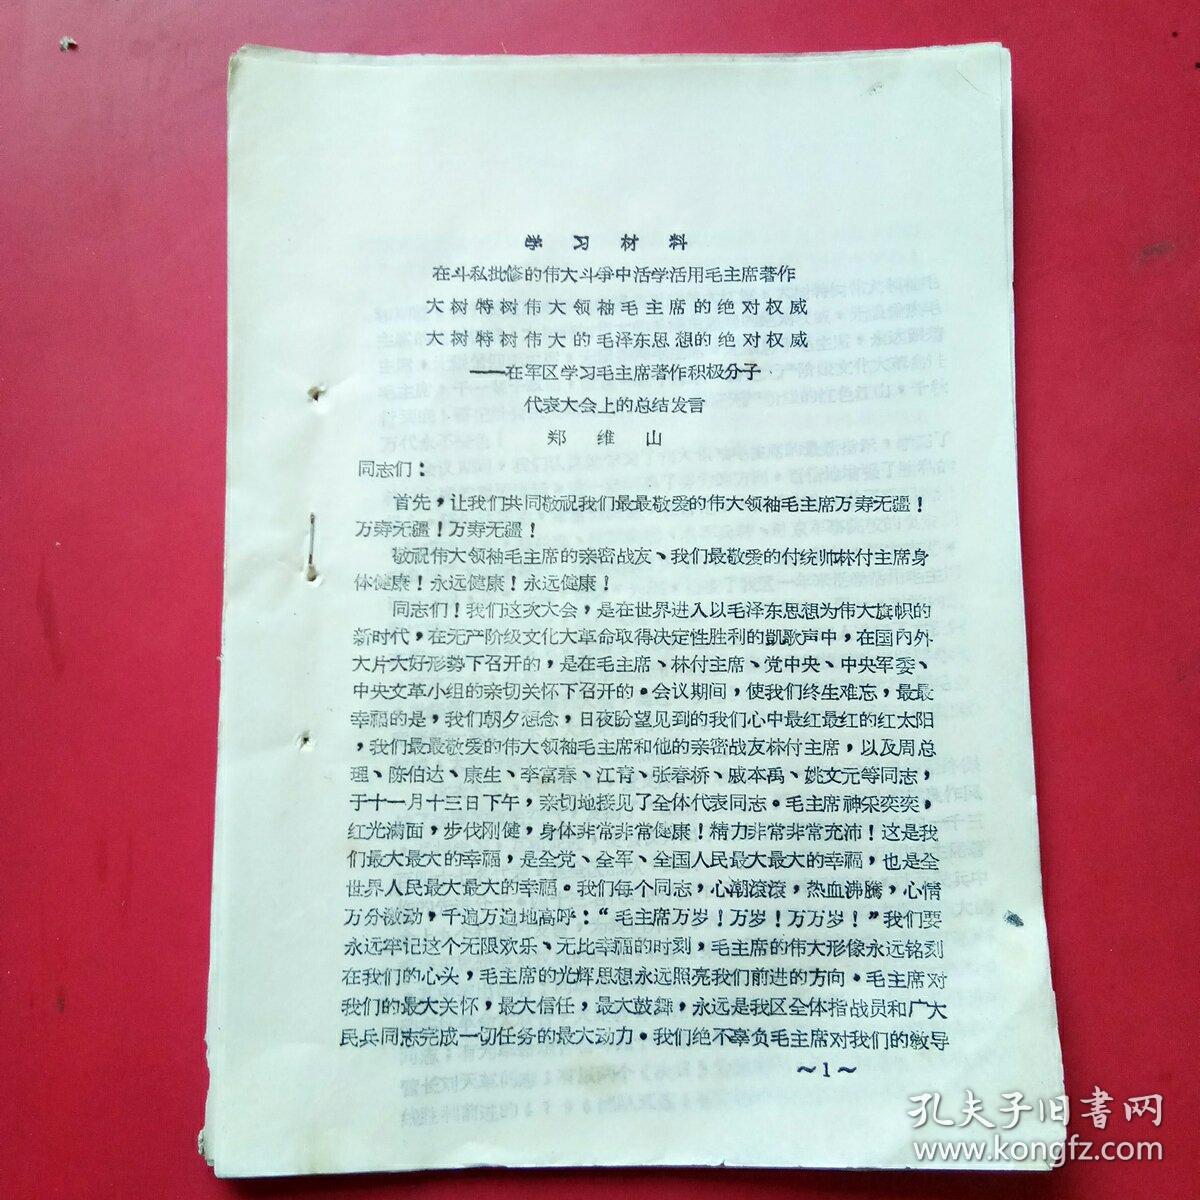 学习材料
在斗私批修的伟大斗争中活学活用毛主席著作
大树特树伟大领袖毛主席的绝对权威
大树特树伟大的毛泽东思想的绝对权威
——在军区学习毛主席著作积极分子
代表大会上的总结发言
郑维山
同志们：
首先，让我们共同敬祝我们最最敬爱的伟大领袖毛主席万寿无疆！
万寿无疆！万寿无疆！
敬祝伟大领袖毛主席的亲密战友、我们最敬爱的付统帅林付主席身
体健康！永远健康！永远健康！
同志们！我们这次大会，是在世界进入以毛泽东思想为伟大旗帜的
新时代，在无产阶级文化大革命取得决定性胜利的凱歌声中，在国内外
大片大好形势下召开的，是在毛主席、林付主席、党中央、中央军委、
中央文革小组的亲切关怀下召开的。会议期间，使我们终生难忘，最最
幸福的是，我们朝夕想念，日夜盼望见到的我们心中最红最红的红太阳
，我们最最敬爱的伟大领袖毛主席和他的亲密战友林付主席，以及周总
理、陈伯达、康生、李富春、江青、张春桥、戚本禹、姚文元等同志，
于十一月十三日下午，亲切地接见了全体代表同志。毛主席神采奕奕，
红光满面，步伐刚健，身体非常非常健康！精力非常非常充沛！这是我
们最大最大的幸福，是全党、全军、全国人民最大最大的幸福，也是全
世界人民最大最大的幸福。我们每个同志，心潮滾滾，热血沸腾，心情
万分激动，千遍万遍地高呼：“毛主席万岁！万岁！万万岁！”我们要
永远牢记这个无限欢乐、无比幸福的时刻，毛主席的伟大形像永远铭刻
在我们的心头，毛主席的光辉思想永远照亮我们前进的方向。毛主席对
我们的最大关怀，最大信任，最大鼓舞，永远是我区全体指战员和广大
民兵同志完成一切任务的最大动力。我们绝不辜负毛主席对我们的教导
～1～
孔夫子旧书网
www.kongfz.com